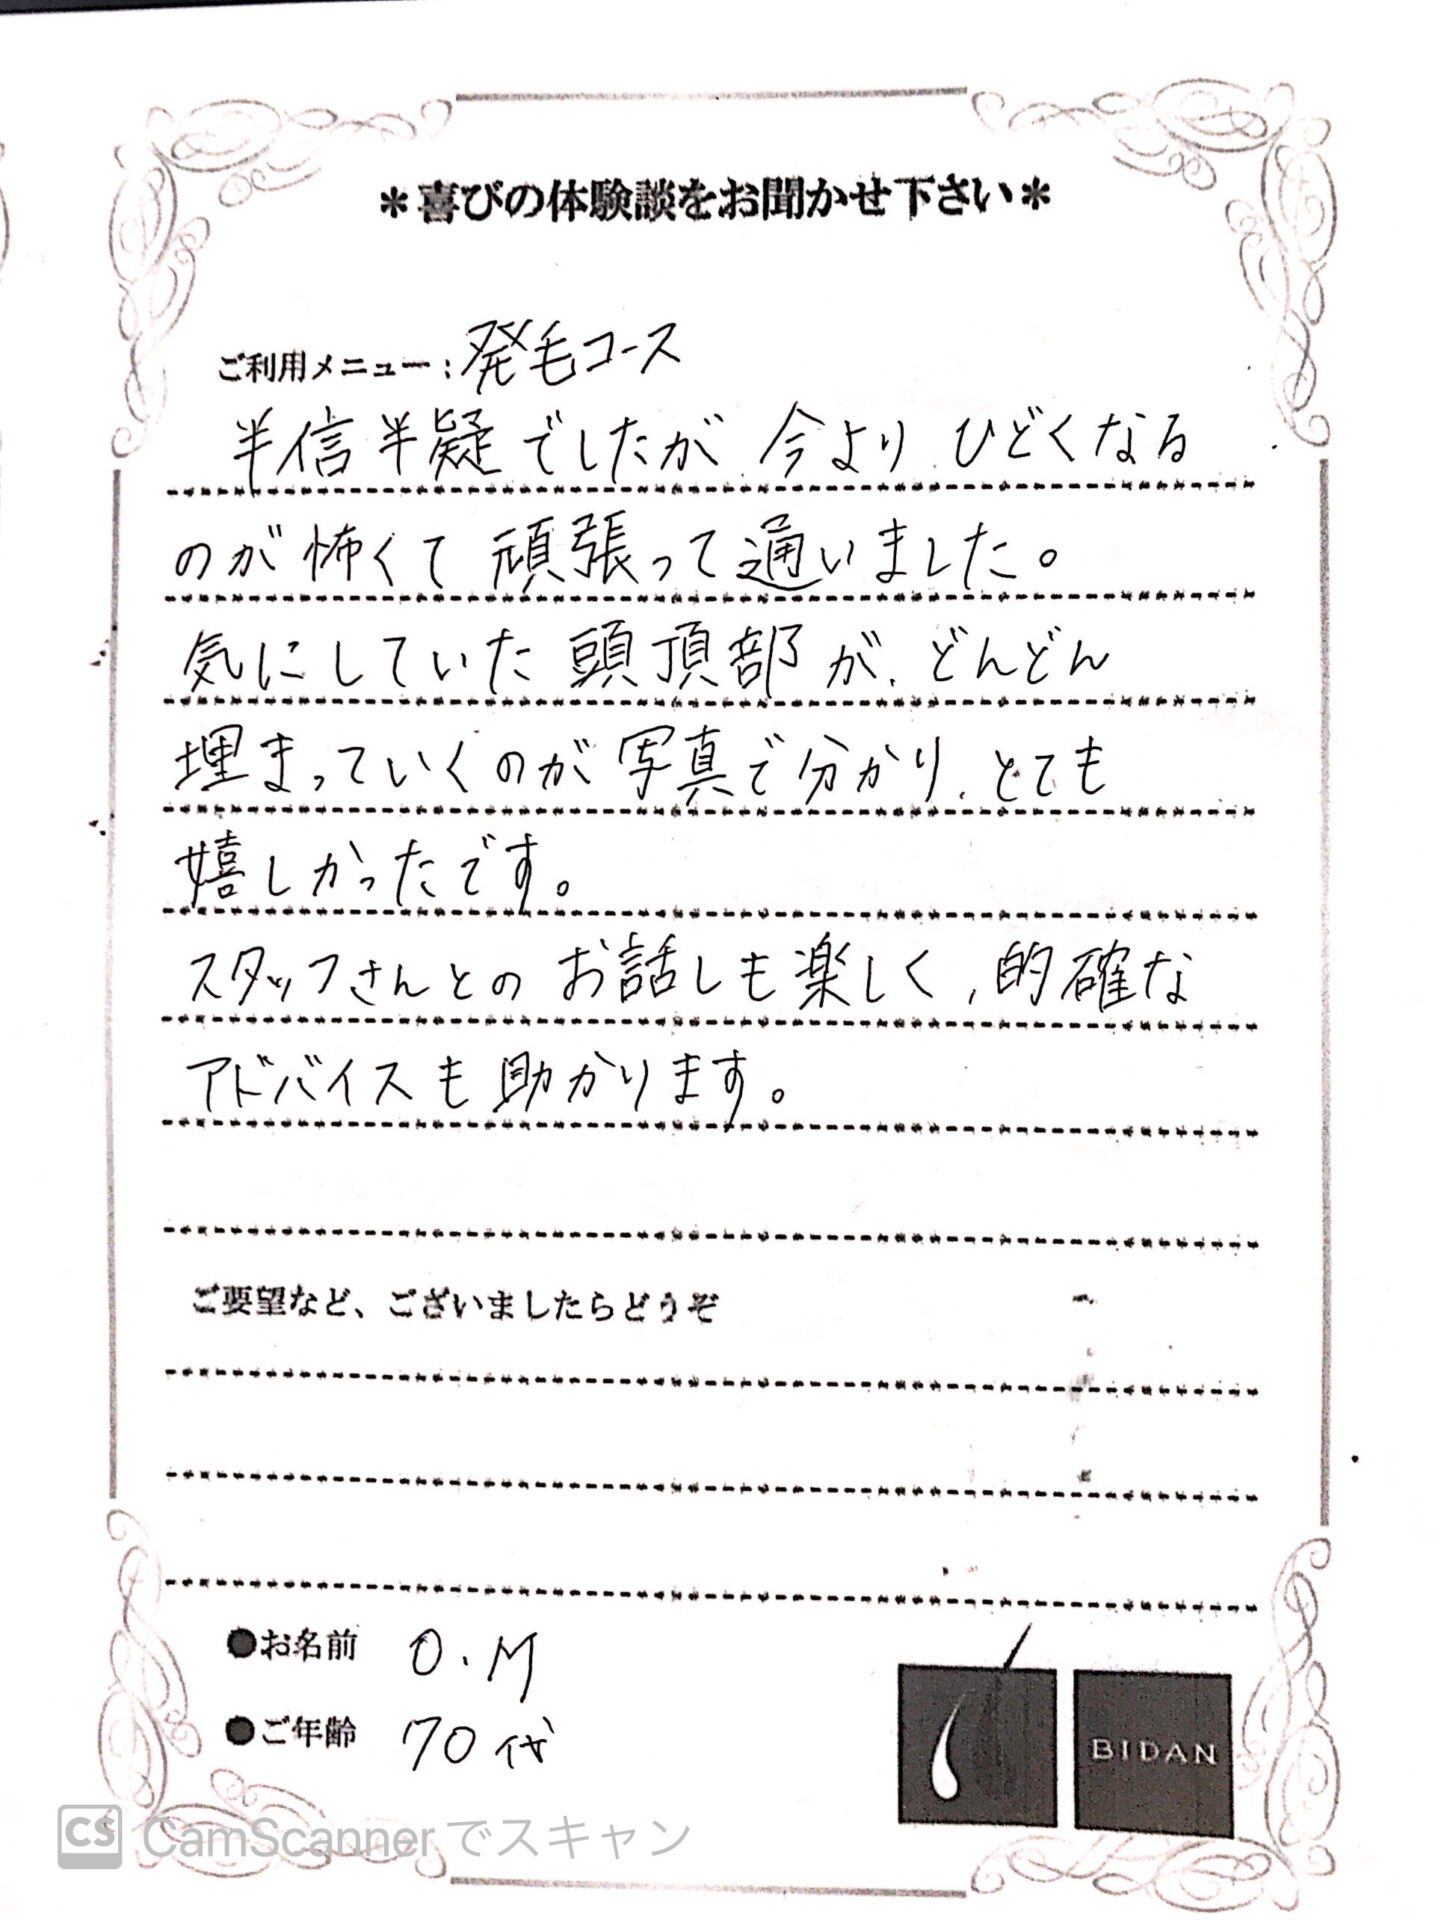 ＊喜びの体験談をお聞かせ下さい＊
ご利用メニュー：発毛コース
半信半疑でしたが、今より ひどくなる
のが怖くて 頑張って通いました。
気にしていた 頭頂部が、どんどん
埋まっていくのが写真で分かり、とても
嬉しかったです。
スタッフさんとの お話しも楽しく、的確な
アドバイスも 助かります。
ご要望など、ございましたらどうぞ
●お名前 O.M
●ご年齢 70代
BIDAN
CS CamScannerでスキャン